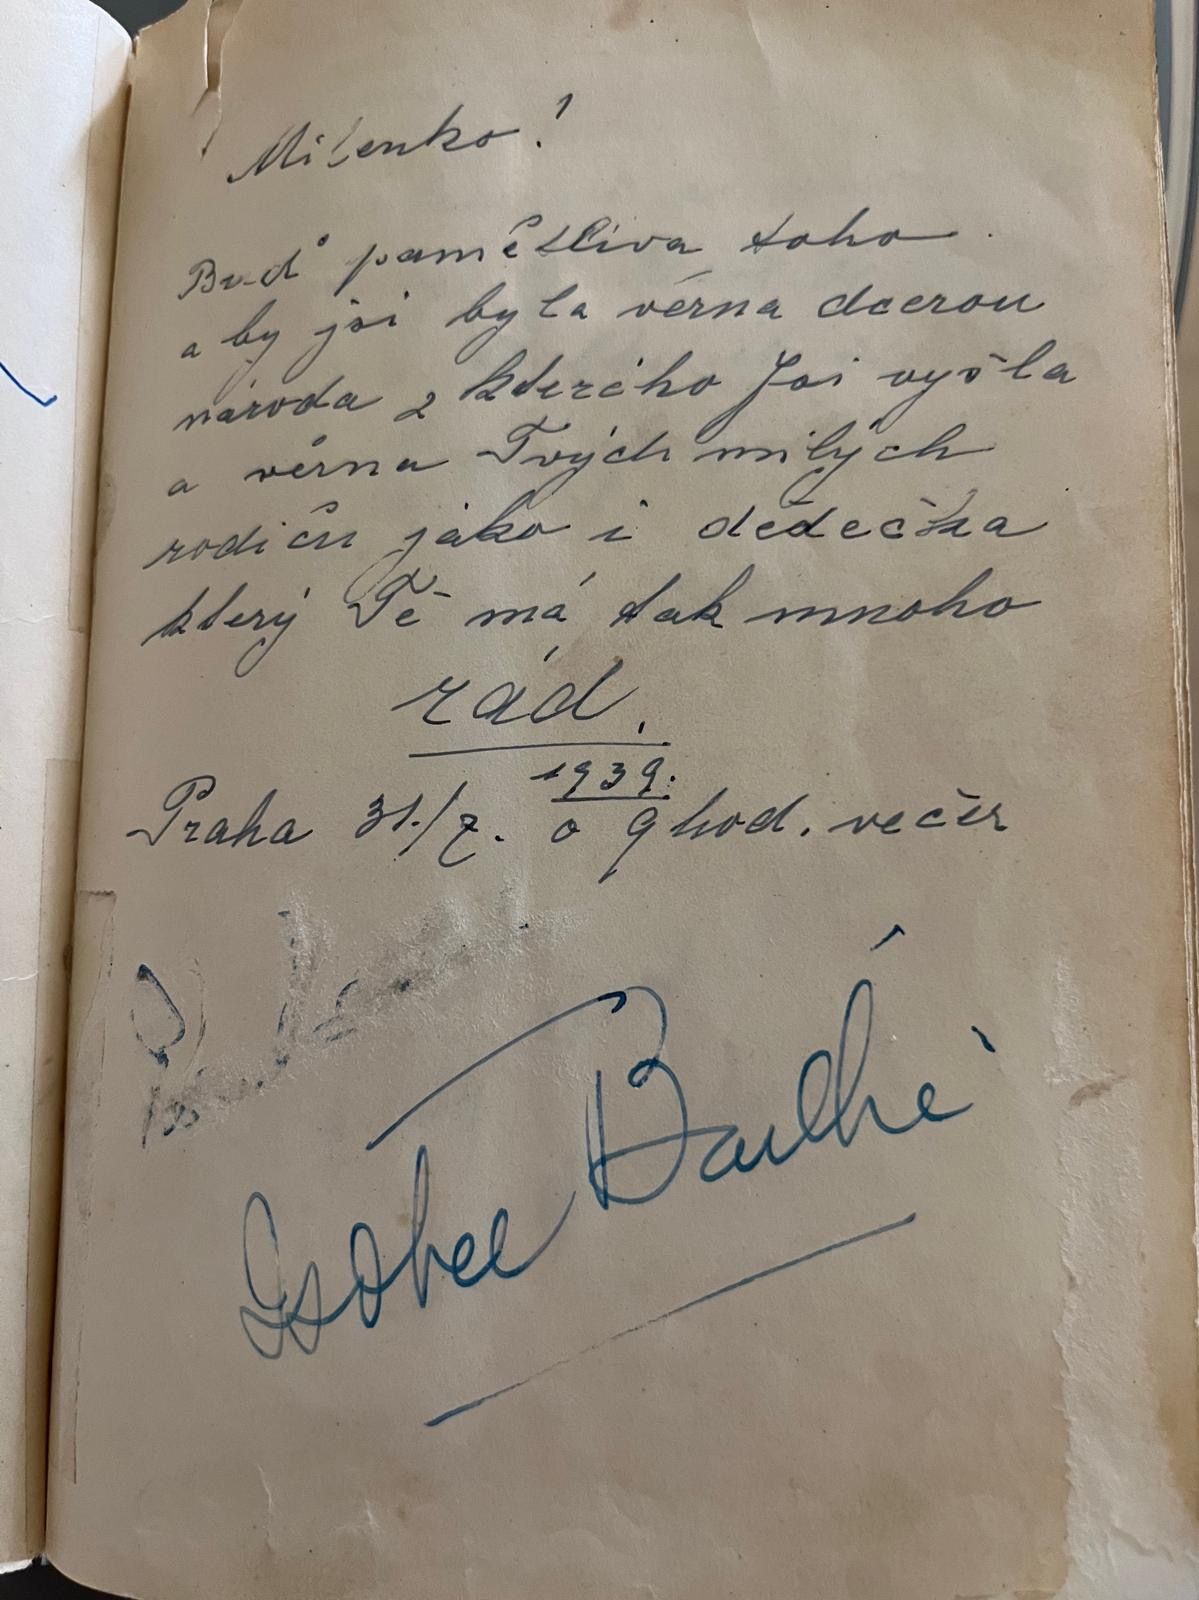 Milenko!
Buď pamětliva toho
aby jsi byla věrna dcerou
národa z kterého Jsi vyšla
a věrna Tvých milých
rodičů jako i dědečka
který Tě má tak mnoho
rád.
1939.
Praha 31./7. o 9 hod. večer